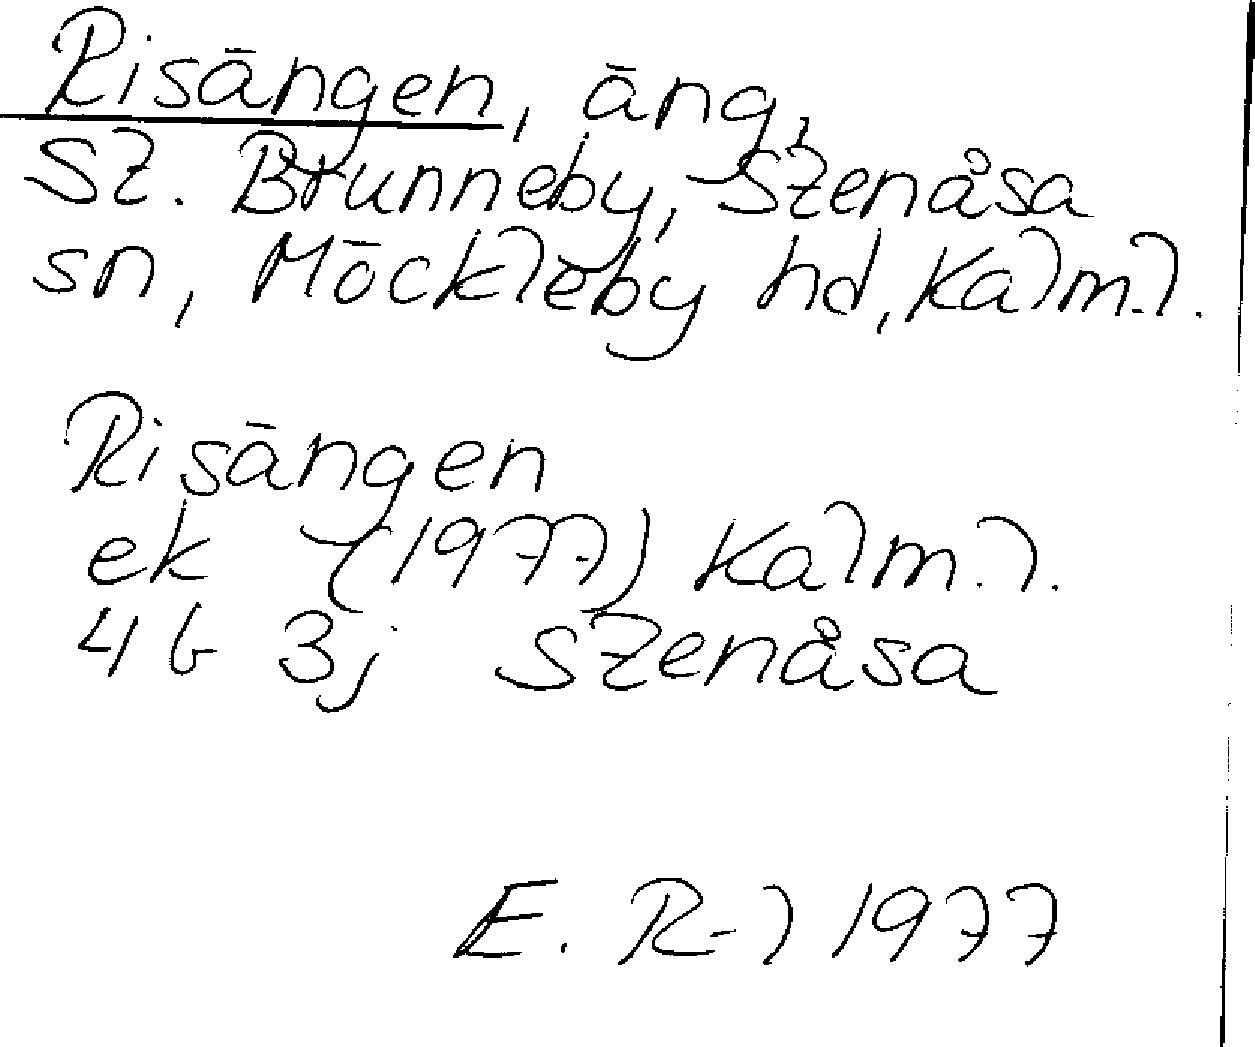 Risängen, äng,
St. Brunneby, Stenåsa
sn, Möckleby hd, Kalm.l.
Risängen
ek (1977) Kalm.l.
4G 3j Stenåsa
E. R-l 1977